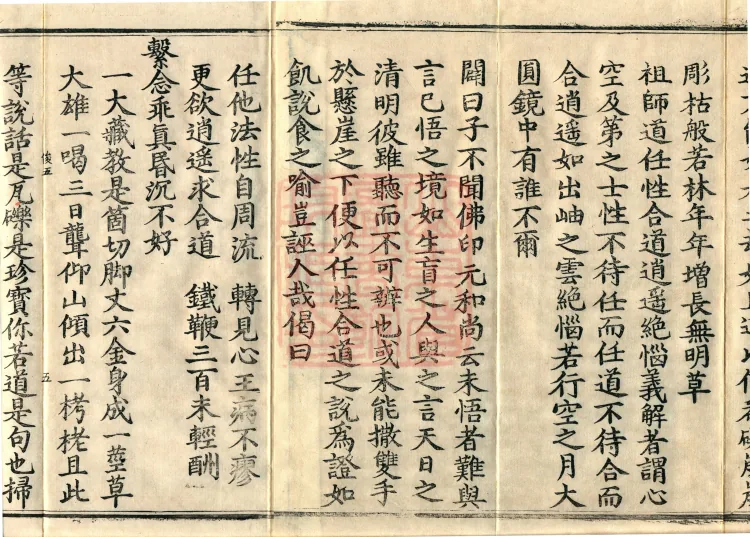 彫枯般若林年年增長無明草
祖師道任性合道逍遥絶惱義解者謂心
空及第之士性不待任而任道不待合而
合逍遥如出岫之雲絶惱若行空之月大
圓鏡中有誰不爾
闢曰子不聞佛印元和尚云未悟者難與
言已悟之境如生盲之人與之言天日之
清明彼雖聽而不可辨也或未能撒雙手
於懸崖之下便以任性合道之說爲證如
飢說食之喻豈誣人哉偈曰
任他法性自周流 轉見心王病不瘳
更欲逍遙求合道 鐵鞭三百未輕酬
繫念乖眞昏沉不好
一大藏教是箇切脚丈六金身成一莖草
大雄一喝三日聾仰山傾出一栲栳且此
俊五
五
等說話是瓦礫是珍寶你若道是句也掃